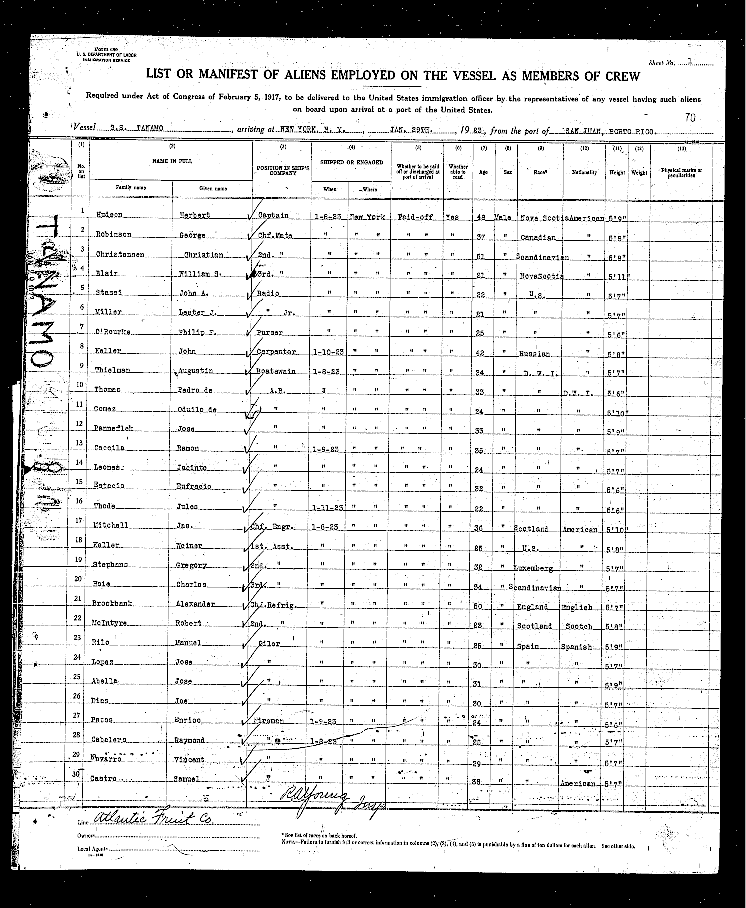 Form 689
U. S. DEPARTMENT OF LABOR
IMMIGRATION SERVICE
Sheet No. 2
LIST OR MANIFEST OF ALIENS EMPLOYED ON THE VESSEL AS MEMBERS OF CREW
Required under Act of Congress of February 5, 1917, to be delivered to the United States immigration officer by the representatives of any vessel having such aliens
on board upon arrival at a port of the United States.
70
Vessel S.S. TANAMO arriving at NEW YORK, N. Y., JAN. 29TH, 1923, from the port of SAN JUAN, PORTO RICO.
(1) (2) (3) (4) (5) (6) (7) (8) (9) (10) (11) (12) (13)
No. on list NAME IN FULL POSITION IN SHIP'S COMPANY SHIPPED OR ENGAGED Whether to be paid off or discharged at port of arrival Whether able to read Age Sex Race* Nationality Height Weight Physical marks or peculiarities
Family name Given name When Where
1 Herbert Captain 1-8-23 New York Paid-off Yes 48 Male Nova Scotia American 5'9"
2 Robinson George Chf.Mate " " " " " " 37 " Canadian " 5'8"
3 Christensen Christian 2nd. " " " " " " " 51 " Scandinavian " 5'9"
4 Blair William S. 3rd. " " " " " " " 21 " NovaScotia " 5'11"
5 Stassi John A. Radio " " " " " " 22 " U.S. " 5'7"
6 Miller Lester J. " Jr. " " " " " " 21 " " " 5'7"
7 O'Rourke Philip F. Purser " " " " " 25 " " " 5'6"
8 Keller John Carpenter 1-10-23 " " " " " 42 " Russian " 5'8"
9 Thielman Augustin Boatswain 1-8-23 " " " " " 24 " D.W.I. " 5'7"
10 Thomas Pedro de A.B. " " " " " 33 " " D.W.I. 5'6"
11 Gomez Oduilo de " " " " " " " 24 " " " 5'10"
12 Jose " " " " " " " 33 " " " 5'9"
13 Ramon " 1-9-23 " " " " " 25 " " "
14 Jacinto " " " " " " " 24 " " " 5'7"
15 Eufracio " " " " " " " 32 " " "
16 Thode Jules " 1-11-23 " " " " " 22 " " "
17 Mitchell Jas. Chf. Engr. 1-8-23 " " " " " 36 " Scotland American 5'10"
18 Keller Weiner 1st. Asst. " " " " " " 26 " U.S. " 5'8"
19 Stephans Gregory 2nd. " " " " " " " 32 " Luxemberg " 5'7"
20 Charles 3rd. " " " " " " " 34 " Scandinavian " 5'7"
21 Brookbank Alexander Chf.Refrig. " " " " " " 50 " England English 5'7"
22 McIntyre Robert 2nd. " " " " " " " 23 " Scotland Scotch 5'8"
23 Rilo Manuel Oiler " " " " " " 26 " Spain Spanish 5'9"
24 Lopez Jose " " " " " " " 30 " " " 5'7"
25 Abella Jose " " " " " " " 31 " " " 5'9"
26 Joe " " " " " " " 30 " " "
27 Enrico Firemen 1-9-23 " " " " " 24 " " "
28 Cabalero Raymond " 1-8-23 " " " " " " " " 5'7"
29 Navarro Vincent " " " " " " " 29 " " " 5'7"
30 Castro Samuel " " " " " " " 38 " " American 5'7"
TANAMO
Line Atlantic Fruit Co.
Owner
Local Agents
*See list of races on back hereof.
NOTE—Failure to furnish full or correct information in columns (2), (9), (4), and (5) is punishable by a fine of ten dollars for each alien. See other side.